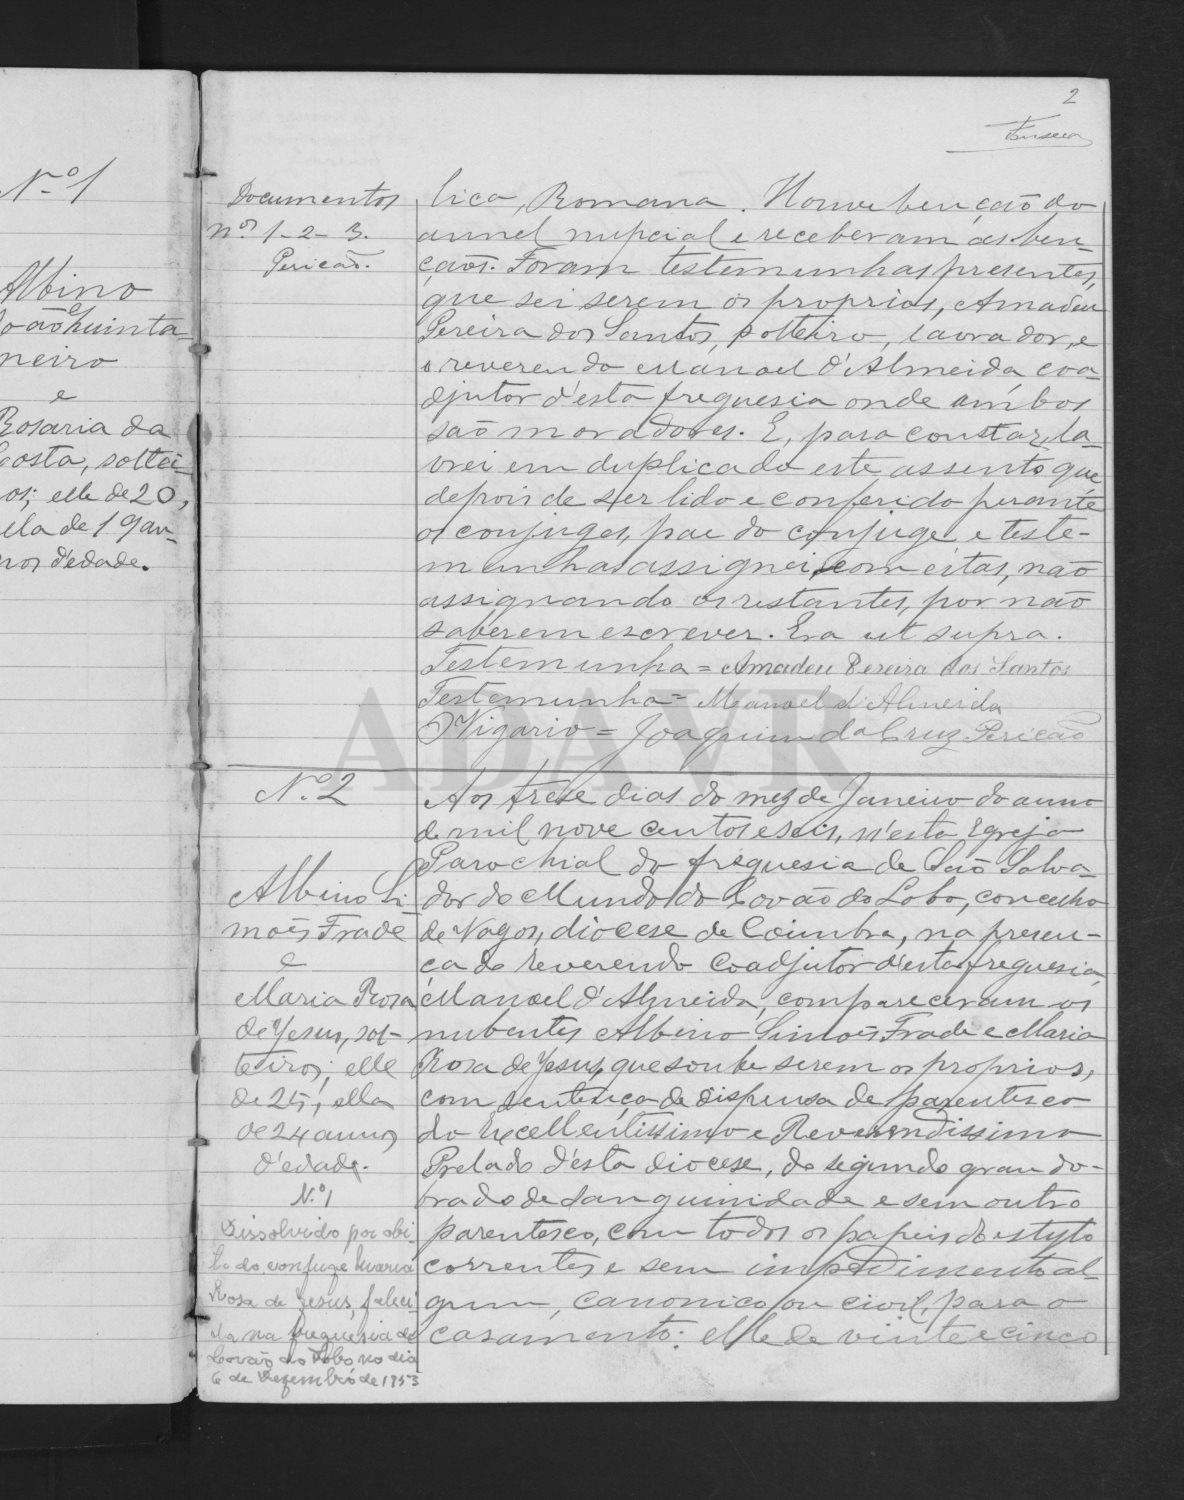 2
Fonseca
Nº 1
Albino
João Quinta-
neiro
e
Rosaria da
Costa, soltei-
os; elle de 20,
ella de 19 an-
nos d'edade.
Documentos
nºs 1-2-3.
Pericão.
lica, Romana. Houve benção do
annel nupcial e receberam as ben-
çaõs. Foram testemunhas presentes,
que sei serem os proprios, Amadeu
Pereira dos Santos, solteiro, lavrador, e
o reverendo Manoel d'Almeida coa-
djutor d'esta freguesia onde ambos
saõ moradores. E, para constar, la-
vrei em duplicado este assento que,
depois de ser lido e conferido perante
os conjuges, pae do conjuge e teste-
munhas assignei com estas, naõ
assignando os restantes, por naõ
saberem escrever. Era ut supra.
Testemunha = Amadeu Pereira dos Santos
Testemunha = Manoel d'Almeida
O Vigario = Joaquim da Cruz Pericão
ADAVR
Nº 2
Albino Si-
mões Frade
e
Maria Rosa
de Jesus, sol-
teiros; elle
de 25, ella
de 24 annos
d'edade.
N.º 1
Dissolvido por obi
to do conjuge Maria
Rosa de Jesus, faleci
da na freguesia de
Covão do Lobo no dia
6 de Dezembro de 1953
Aos trese dias do mez de Janeiro do anno
de mil nove centos e seis, n'esta Egreja
Parochial da freguesia de Saõ Salva-
dor do Mundo do Covão do Lobo, concelho
de Vagos, diocese de Coimbra, na presen-
ça do reverendo coadjutor d'esta freguesia,
Manoel d'Almeida, compareceram os
nubentes Albino Simões Frade e Maria
Rosa de Jesus, que soube serem os proprios,
com sentença de dispensa de parentesco
do Excellentissimo e Reverendissimo
Prelado d'esta diocese, do segundo grau do-
brado de sanguinidade e sem outro
parentesco, com todos os papeis do estylo
correntes e sem impedimento al-
gum, canonico ou civil, para o
casamento: elle de vinte e cinco